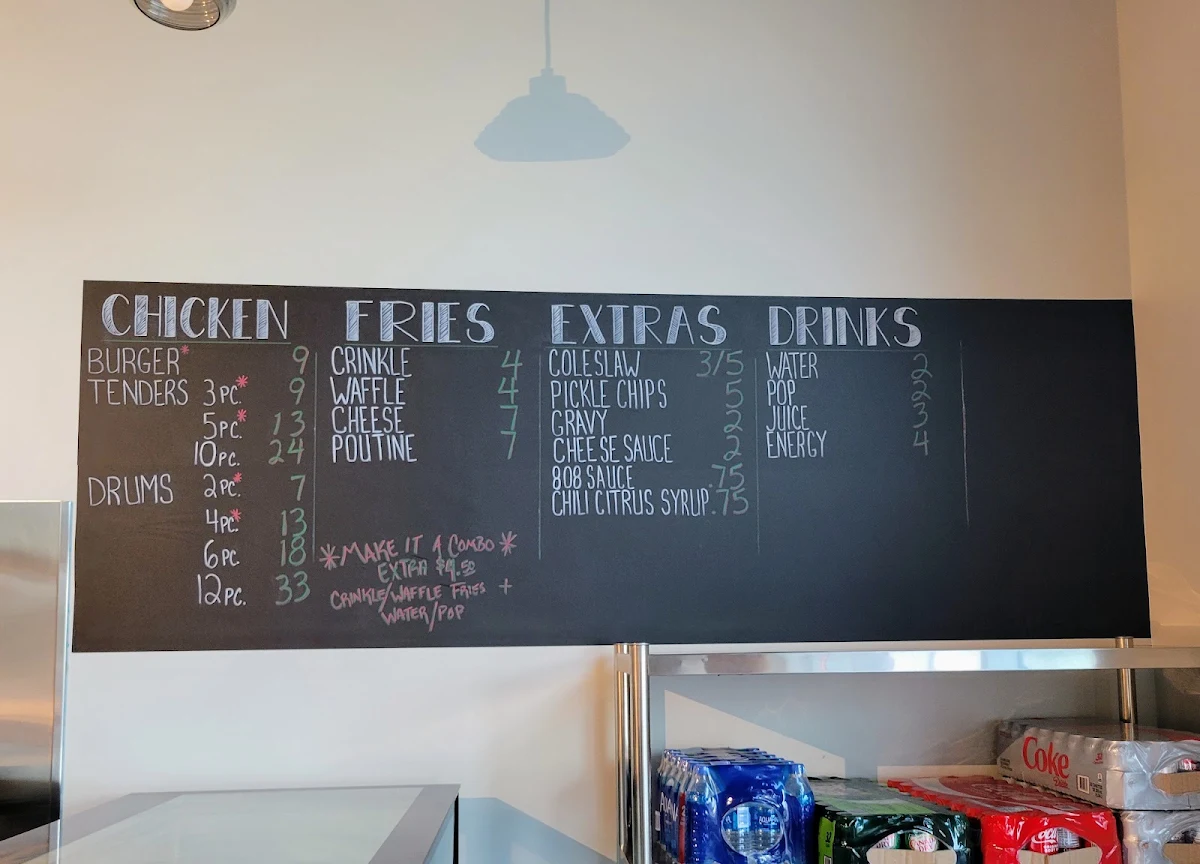 CHICKEN
BURGER* 9
TENDERS 3 PC.* 9
5 PC.* 13
10 PC. 24
DRUMS 2 PC.* 7
4 PC.* 13
6 PC. 18
12 PC. 33
FRIES
CRINKLE 4
WAFFLE 4
CHEESE 7
POUTINE 7
*MAKE IT A COMBO*
EXTRA $4.50
CRINKLE/WAFFLE FRIES +
WATER/POP
EXTRAS
COLESLAW 3/5
PICKLE CHIPS 5
GRAVY 2
CHEESE SAUCE 2
808 SAUCE .75
CHILI CITRUS SYRUP .75
DRINKS
WATER 2
POP 2
JUICE 3
ENERGY 4
Coke